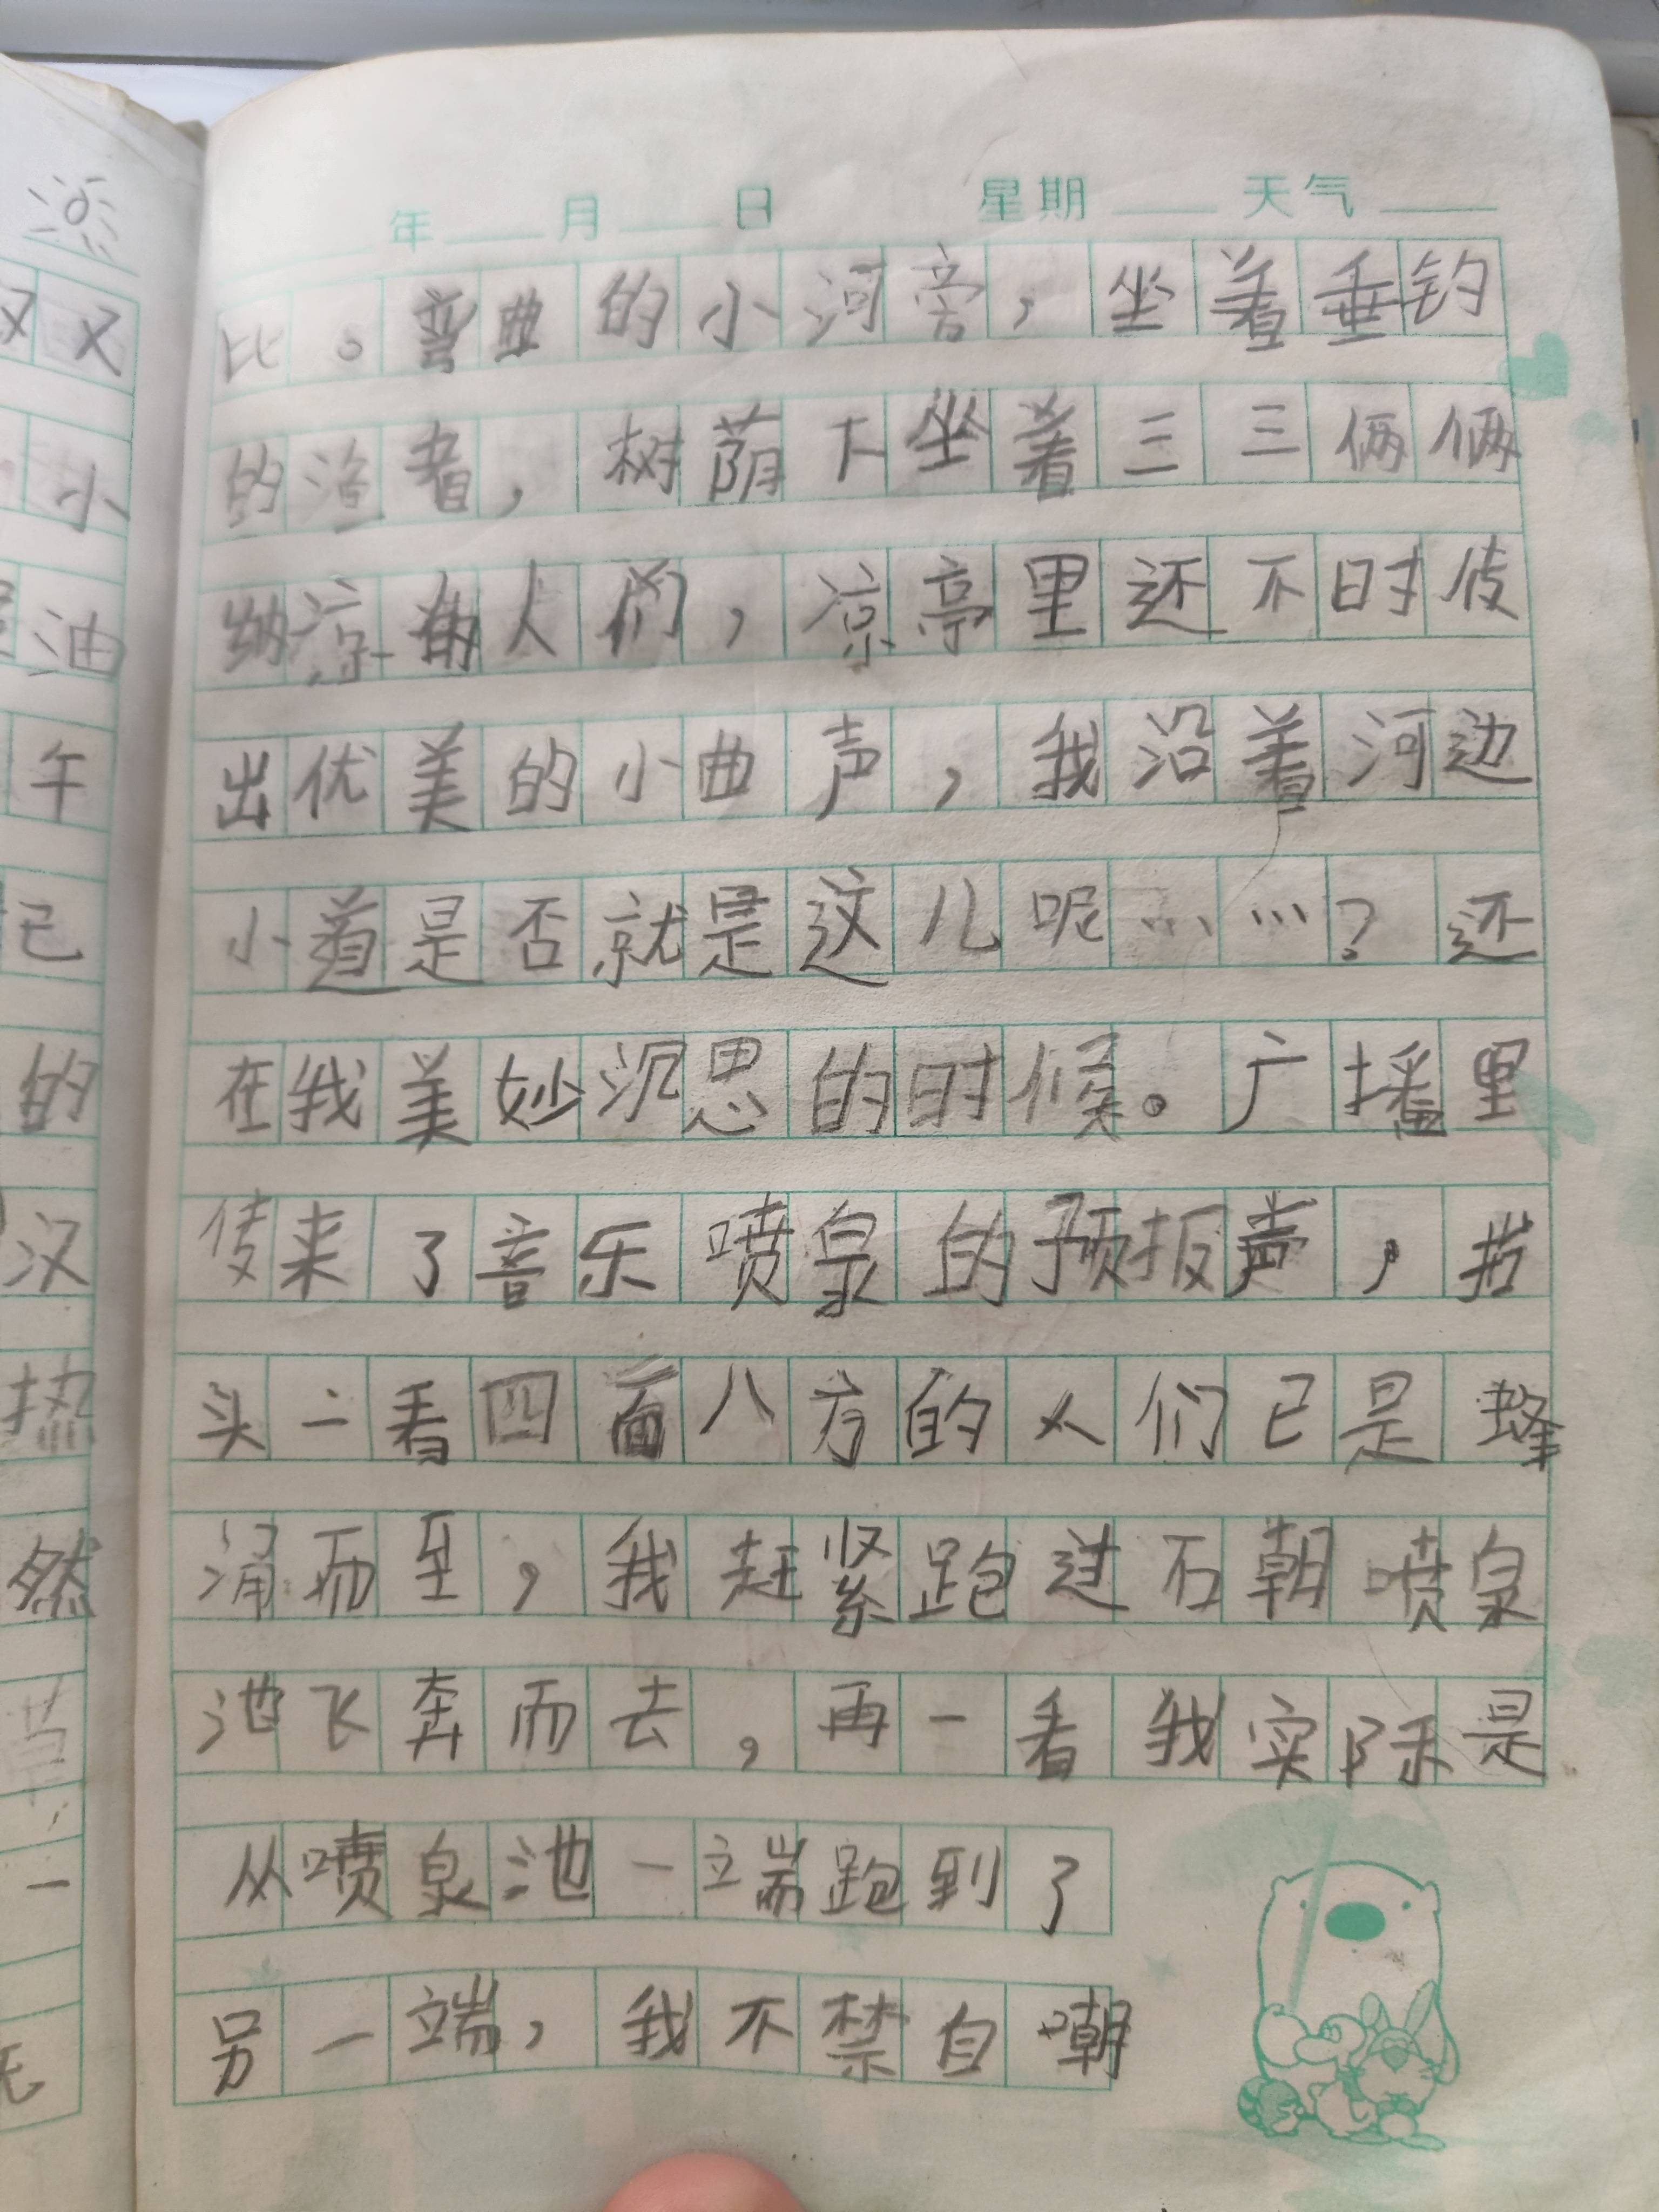 年 月 日 星期 天气
比。弯曲的小河旁，坐着垂钓
的渔者，树荫下坐着三三俩俩
纳凉的人们，凉亭里还不时传
出优美的小曲声，我沿着河边
小道是否就是这儿呢……？还
在我美妙沉思的时候。广播里
传来了音乐喷泉的预报声，抬
头一看四面八方的人们已是蜂
涌而至，我赶紧跑过石朝喷泉
池飞奔而去，再一看我实际是
从喷泉池一端跑到了
另一端，我不禁自嘲
又
小
油
午
已
的
汉
热
然
一